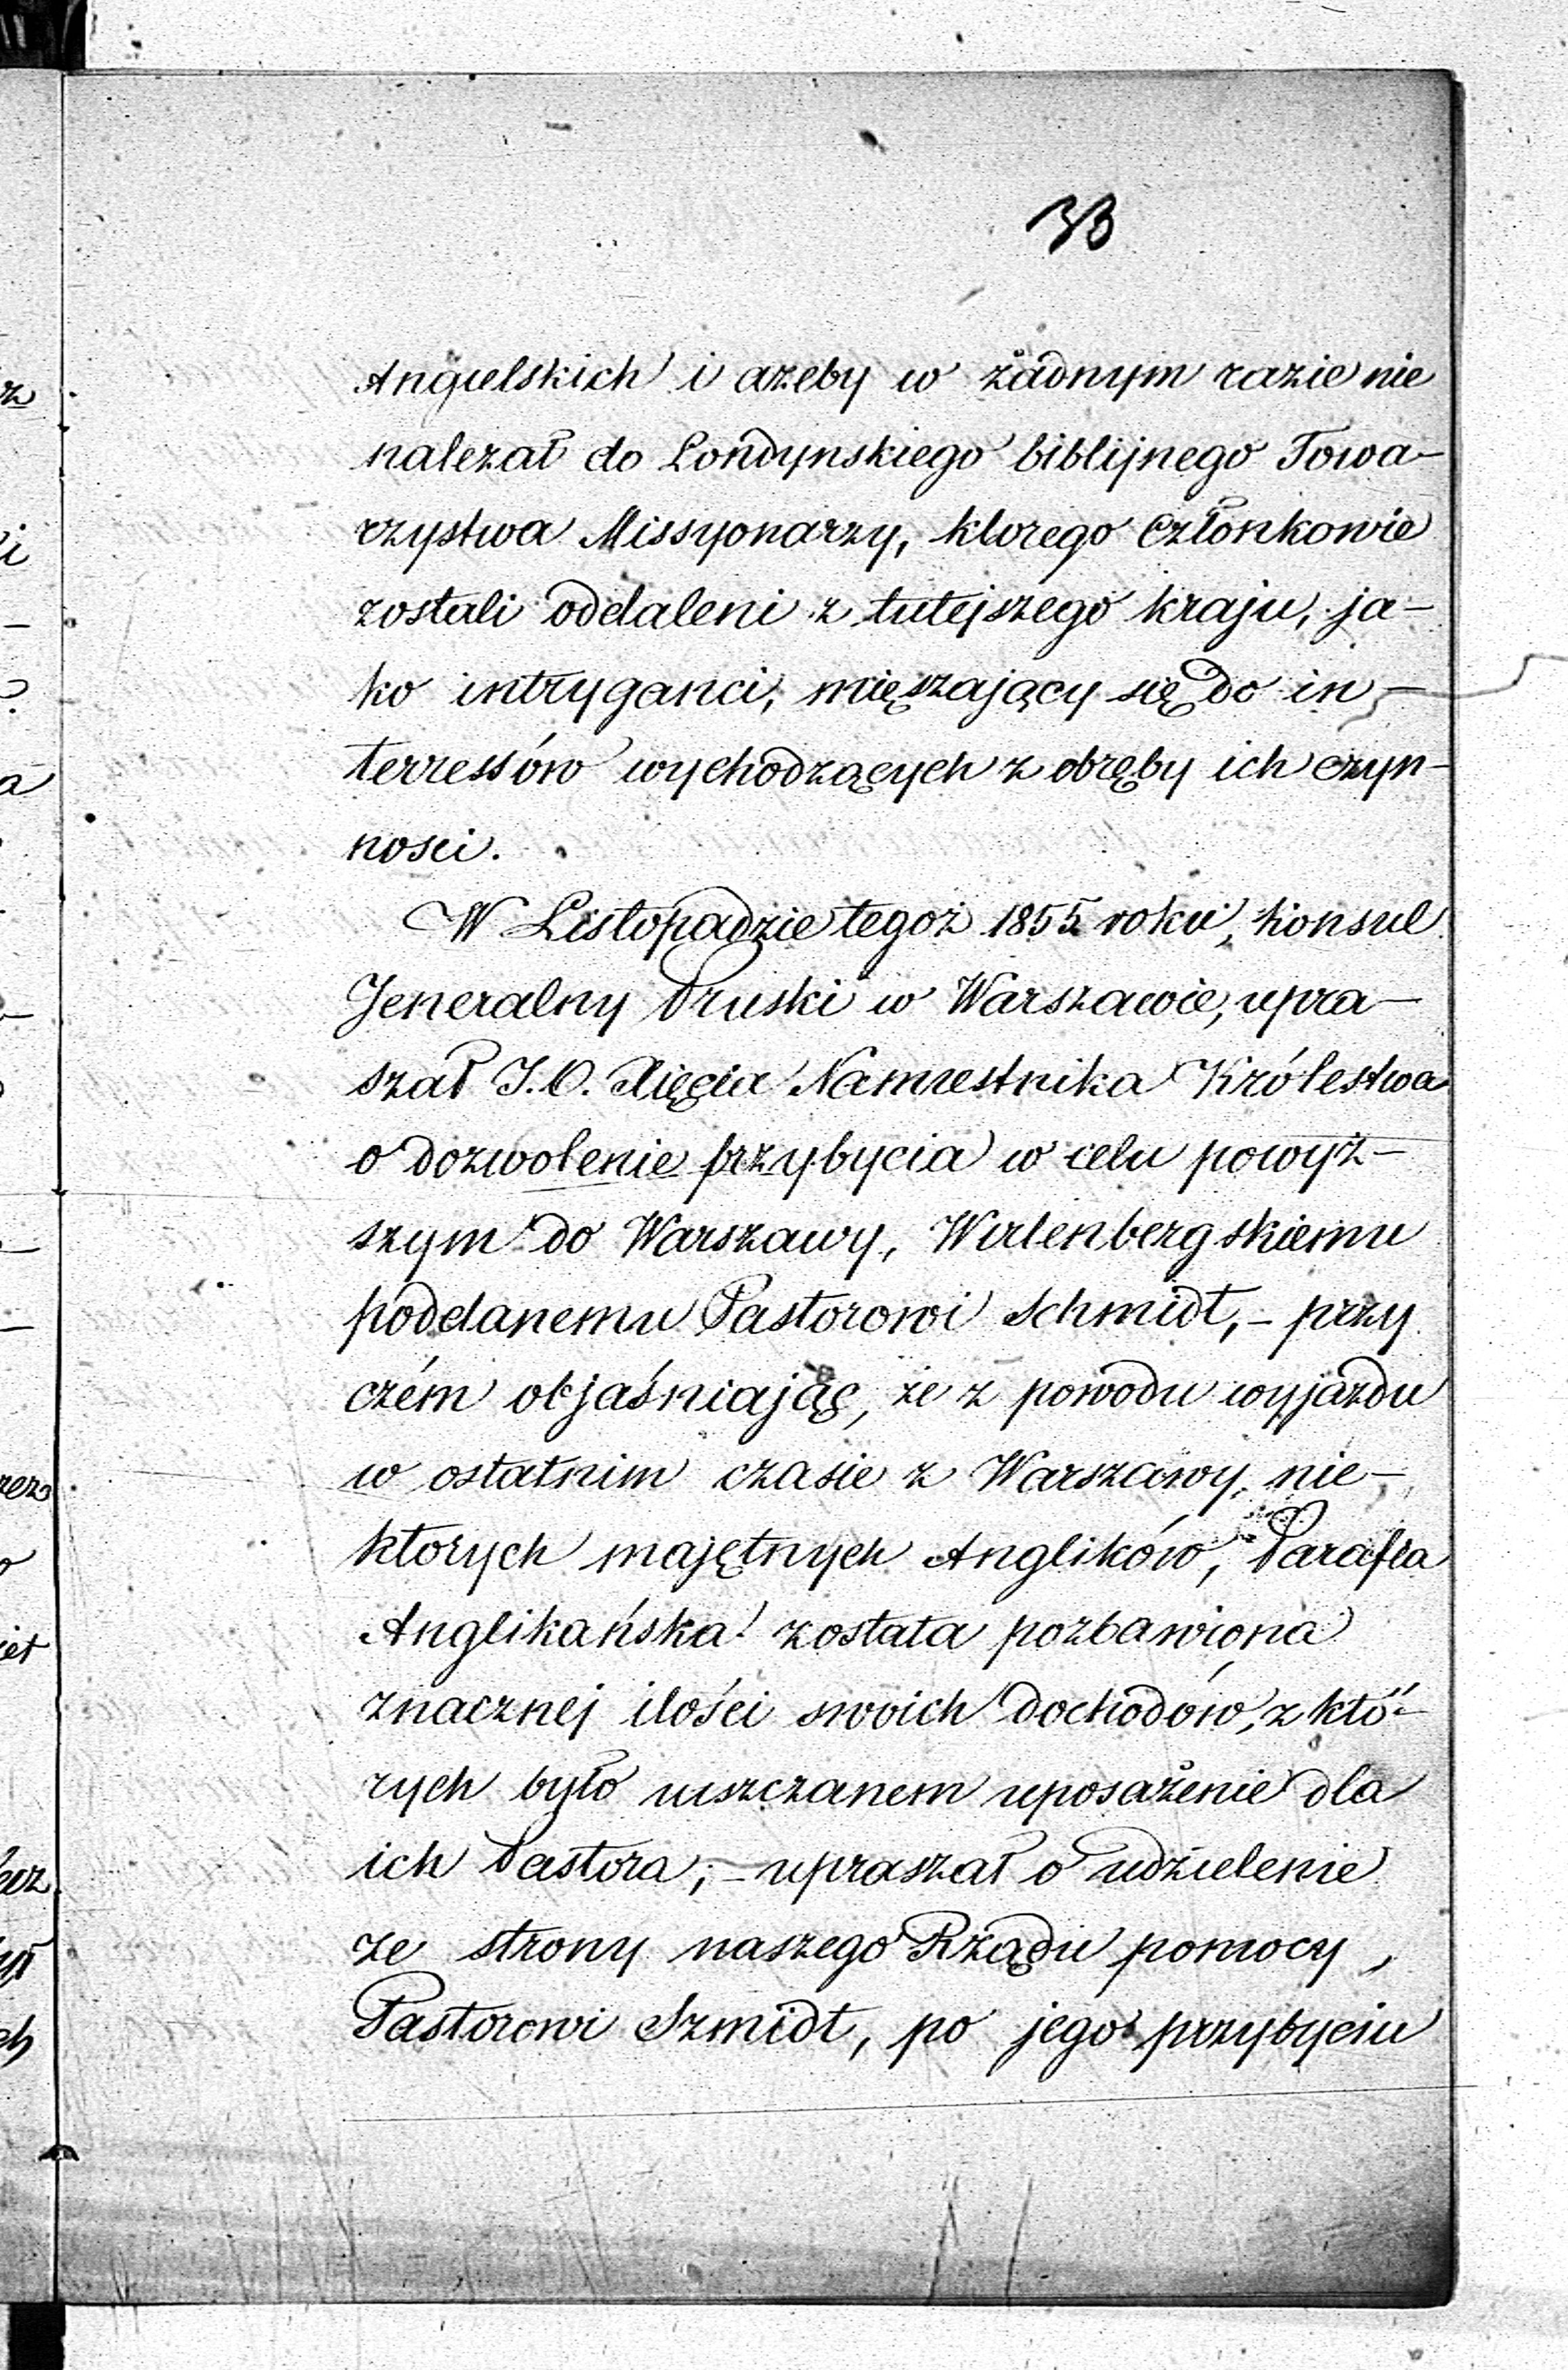 33
Angielskich i ażeby w żadnym razie nie
należał do Londynskiego biblijnego Towa-
rzystwa Missyonarzy, ktorego Członkowie
zostali oddaleni z tutejszego kraju, ja-
ko intryganci, mięszający się do in-
terressów wychodzących z obręby ich czyn-
nosci.
W Listopadzie tegoż 1855 roku, Konsul
Jeneralny Pruski w Warszawie, upra-
szał J.O. Xięcia Namiestnika Królestwa
o dozwolenie przybycia w celu powyż-
szym do Warszawy, Wirtenbergskiemu
poddanemu Pastorowi Schmidt, - przy
czém objaśniając, że z powodu wyjazdu
w ostatnim czasie z Warszawy, nie-
ktorych majętnych Anglików, Parafia
Anglikańska została pozbawiona
znacznej ilości swoich dochodów, z któ-
rych było uiszczanem uposażenie dla
ich Pastora; - upraszał o udzielenie
ze strony naszego Rządu pomocy,
Pastorowi Szmidt, po jego przybyciu